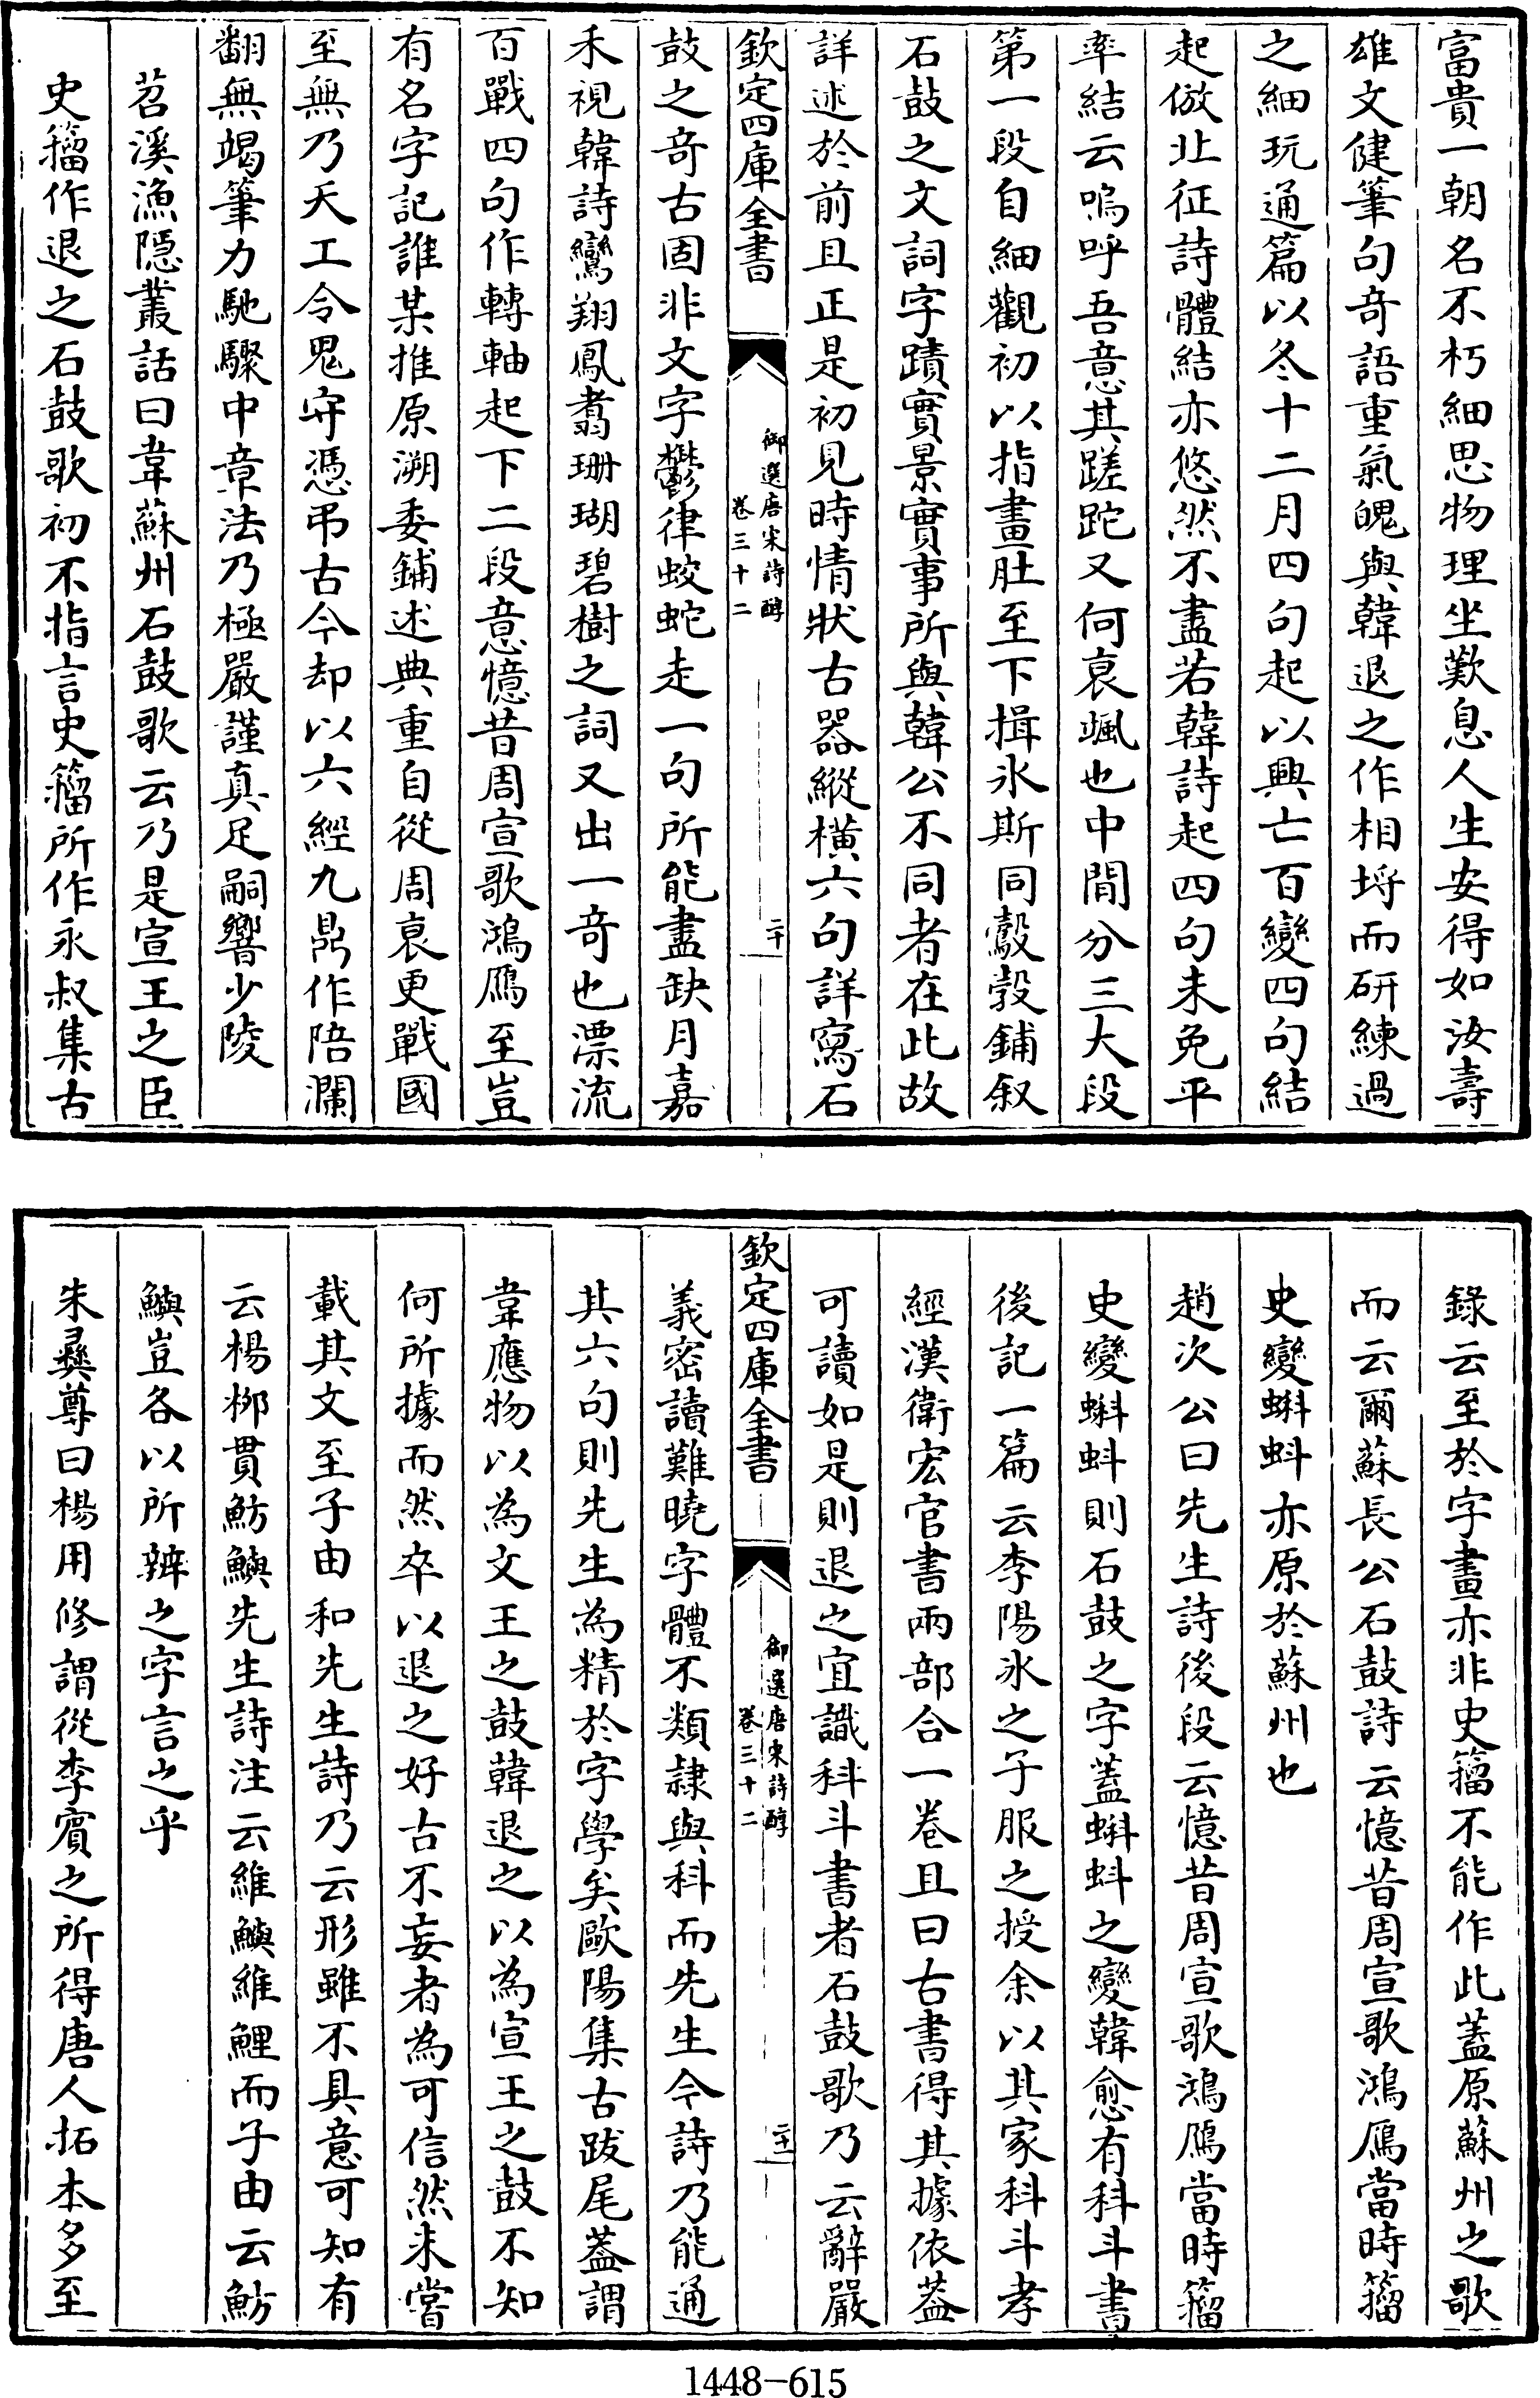 富貴一朝名不朽細思物理坐歎息人生安得如汝壽
雄文健筆句奇語重氣魄與韓退之作相埒而研練過
之細玩通篇以冬十二月四句起以興亡百變四句結
起倣北征詩體結亦悠然不盡若韓詩起四句未免平
率結云嗚呼吾意其蹉跎又何衰颯也中間分三大段
第一段自細觀初以指畫肚至下揖冰斯同鷇㝅鋪叙
石鼓之文詞字蹟實景實事所與韓公不同者在此故
詳述於前且正是初見時情狀古器縱橫六句詳寫石
欽定四庫全書
御選唐宋詩醇
卷三十二
二十
鼓之奇古固非文字鬱律蛟蛇走一句所能盡缺月嘉
禾視韓詩鸞翔鳳翥珊瑚碧樹之詞又出一奇也漂流
百戰四句作轉軸起下二段意憶昔周宣歌鴻鴈至豈
有名字記誰某推原溯委鋪述典重自從周衰更戰國
至無乃天工令鬼守憑弔古今却以六經九鼎作陪瀾
翻無竭筆力馳驟中章法乃極嚴謹真足嗣響少陵
苕溪漁隱叢話曰韋蘇州石鼓歌云乃是宣王之臣
史籀作退之石鼓歌初不指言史籀所作永叔集古
錄云至於字畫亦非史籀不能作此蓋原蘇州之歌
而云爾蘇長公石鼓詩云憶昔周宣歌鴻鴈當時籀
史變蝌蚪亦原於蘇州也
趙次公曰先生詩後段云憶昔周宣歌鴻鴈當時籀
史變蝌蚪則石鼓之字蓋蝌蚪之變韓愈有科斗書
後記一篇云李陽冰之子服之授余以其家科斗孝
經漢衛宏官書兩部合一卷且曰古書得其據依葢
可讀如是則退之宜識科斗書者石鼓歌乃云辭嚴
欽定四庫全書
御選唐宋詩醇
卷三十二
二十一
義密讀難曉字體不類隷與科而先生今詩乃能通
其六句則先生為精於字學矣歐陽集古跋尾蓋謂
韋應物以為文王之鼓韓退之以為宣王之鼓不知
何所據而然卒以退之好古不妄者為可信然未嘗
載其文至子由和先生詩乃云形雖不具意可知有
云楊柳貫魴鱮先生詩注云維鱮維鯉而子由云魴
鱮豈各以所辨之字言之乎
朱彛尊曰楊用修謂從李賓之所得唐人拓本多至
1448-615